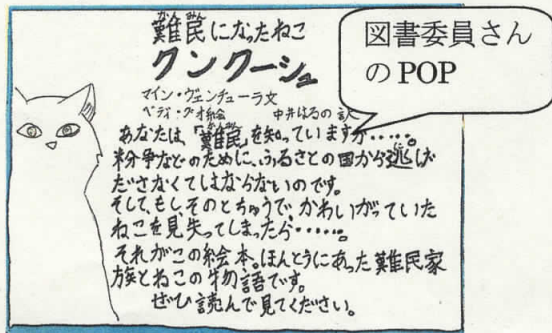 難民になったねこ
クンクーシュ
マイン・ヴェンチューラ文
ベディ・グオ絵 中井はるの 訳
あなたは、「難民」を知っていますか……。
紛争などのために、ふるさとの国から逃げ
ださなくてはならないのです。
そして、もし、そのとちゅうで、かわいがっていた
ねこを見失ってしまったら……。
それがこの絵本。ほんとうにあった難民家
族とねこの物語です。
ぜひ読んで見てください。
図書委員さん
のPOP